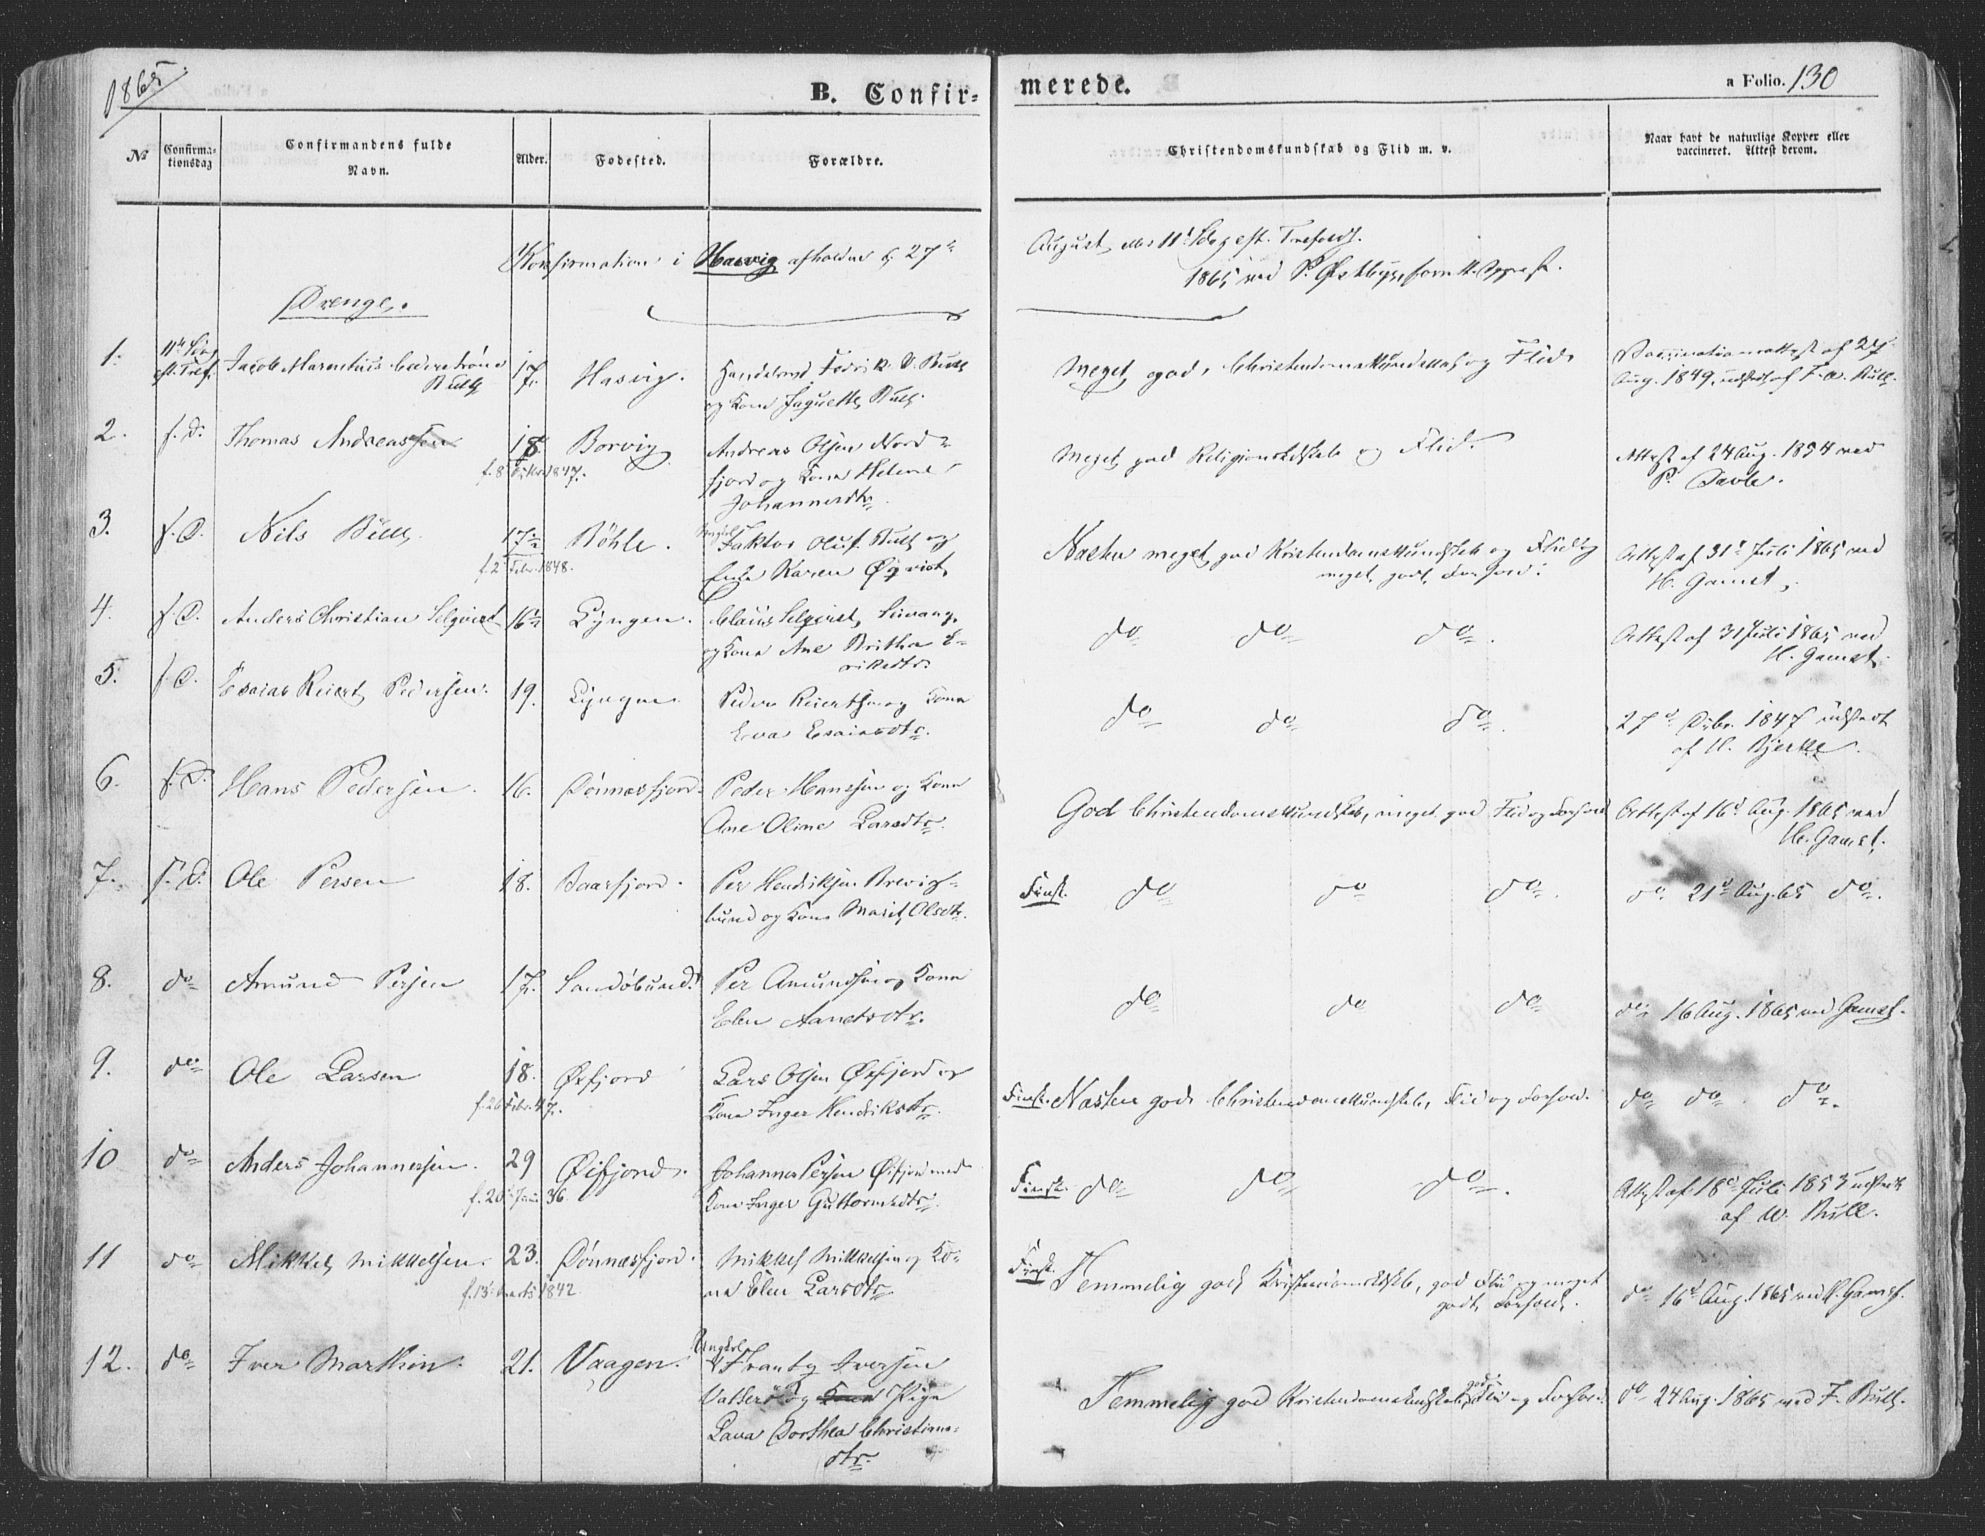 1865
B. Confir-
merede.
a Folio. 130
No
Confirma-
tionsdag
Confirmandens fulde
Navn.
Alder.
Fødested.
Forældre.
Christendomskundskab og Flid m. v.
Naar havt de naturlige Kopper eller
vaccineret. Attest derom.
Konfirmation i Hasvig afholdt d. 27de
August
1865 ved P.
Drenge.
1.
Jacob Marentius
Bull
17
Hasvig.
Handelsmd
og Kone Bull.
Meget god Christendomskundskab og Flid.
Vaccinationsattest af 27
Aug. 1849, udstedt af F. W. Bull.
2.
f. D.
Thomas Andreassen
18
f. 8 1847.
Borvig
Andreas Olsen Nord-
fjord og Kone Helene
Johannesdtr.
Meget god Religionskdskab og Flid.
Attest af 24 Aug. 1854 ved
P. Aavle.
3.
f. D.
Nils Bull
17
f. 2 Febr 1848.
Böhle.
Ungkl Faktor Oluf Bull og
Enke Karen Öqvist
Næsten meget god Kristendomskundskab og Flid og
meget godt Forhold.
Attest af 31te Juli 1865 ved
H. Gamst.
4.
f. D.
Anders Christian Selqvist
16
Lyngen.
Claus Selqvist,
og Kone Ane Britha E-
riksdtr.
do do do.
Attest af 31 Juli 1865 ved
H. Gamst.
5.
f. D.
Esaias Reiert Pedersen.
19.
Lyngen
Peder Reiertsen og Kone
Eva Esaiasdtr.
do do do.
27d 1847 udstedt
af H. Bjerke.
6.
f. D.
Hans Pedersen.
16.
Dönnesfjord.
Peder Hanssen og Kone
Ane Oline Larsdtr.
God Christendomskundskab, meget god Flid og Forhold
Attest af 16d Aug. 1865 ved
H. Gamst.
7.
f. D.
Ole Persen
18.
Baarfjord.
Per Hendriksen Brevig-
bund og Kone Marit Olsdtr.
Finsk. do do do.
do 21d Aug. 65 do.
8.
do
Amund Persen
17.
Sandöbund.
Per Amundsen og Kone
Elen Aanetsdtr.
do do do
do 16 Aug. 1865 ved Gamst.
9.
do
Ole Larsen
18.
f. 26 Febr. 47.
Öxfjord
Lars Olsen Öxfjord og
Kone Inger Hendriksdtr.
Finsk. Næsten god Christendomskundskab, Flid og Forhold.
do do do.
10
do
Anders Johannesen.
29
f. 20 36
Öxfjord.
Johannes Persen Öxfjord med
Kone Inger Guttormsdtr.
Finsk. do do do.
Attest af 18d Juli 1853 udstedt
af W. Bull.
11
do
Mikkel Mikkelsen.
23.
f. 13 Marts 1842.
Dönnesfjord.
Mikkel Mikkelsen og Ko-
ne Elen Larsdtr
Finsk. Temmelig god Kristendomskdskb, god Flid og meget
godt Forhold.
do 16d Aug. 1865 ved H. Gamst.
12.
do
Iver Marthin.
21.
Vaagen.
Ungkl
Frants Iversen
og Kone Pige
Lava Dorthea Christians-
dtr.
Temmelig god Kristendomskundskab, god Flid og Forhold.
do 24 Aug. 1865 ved F. Bull.